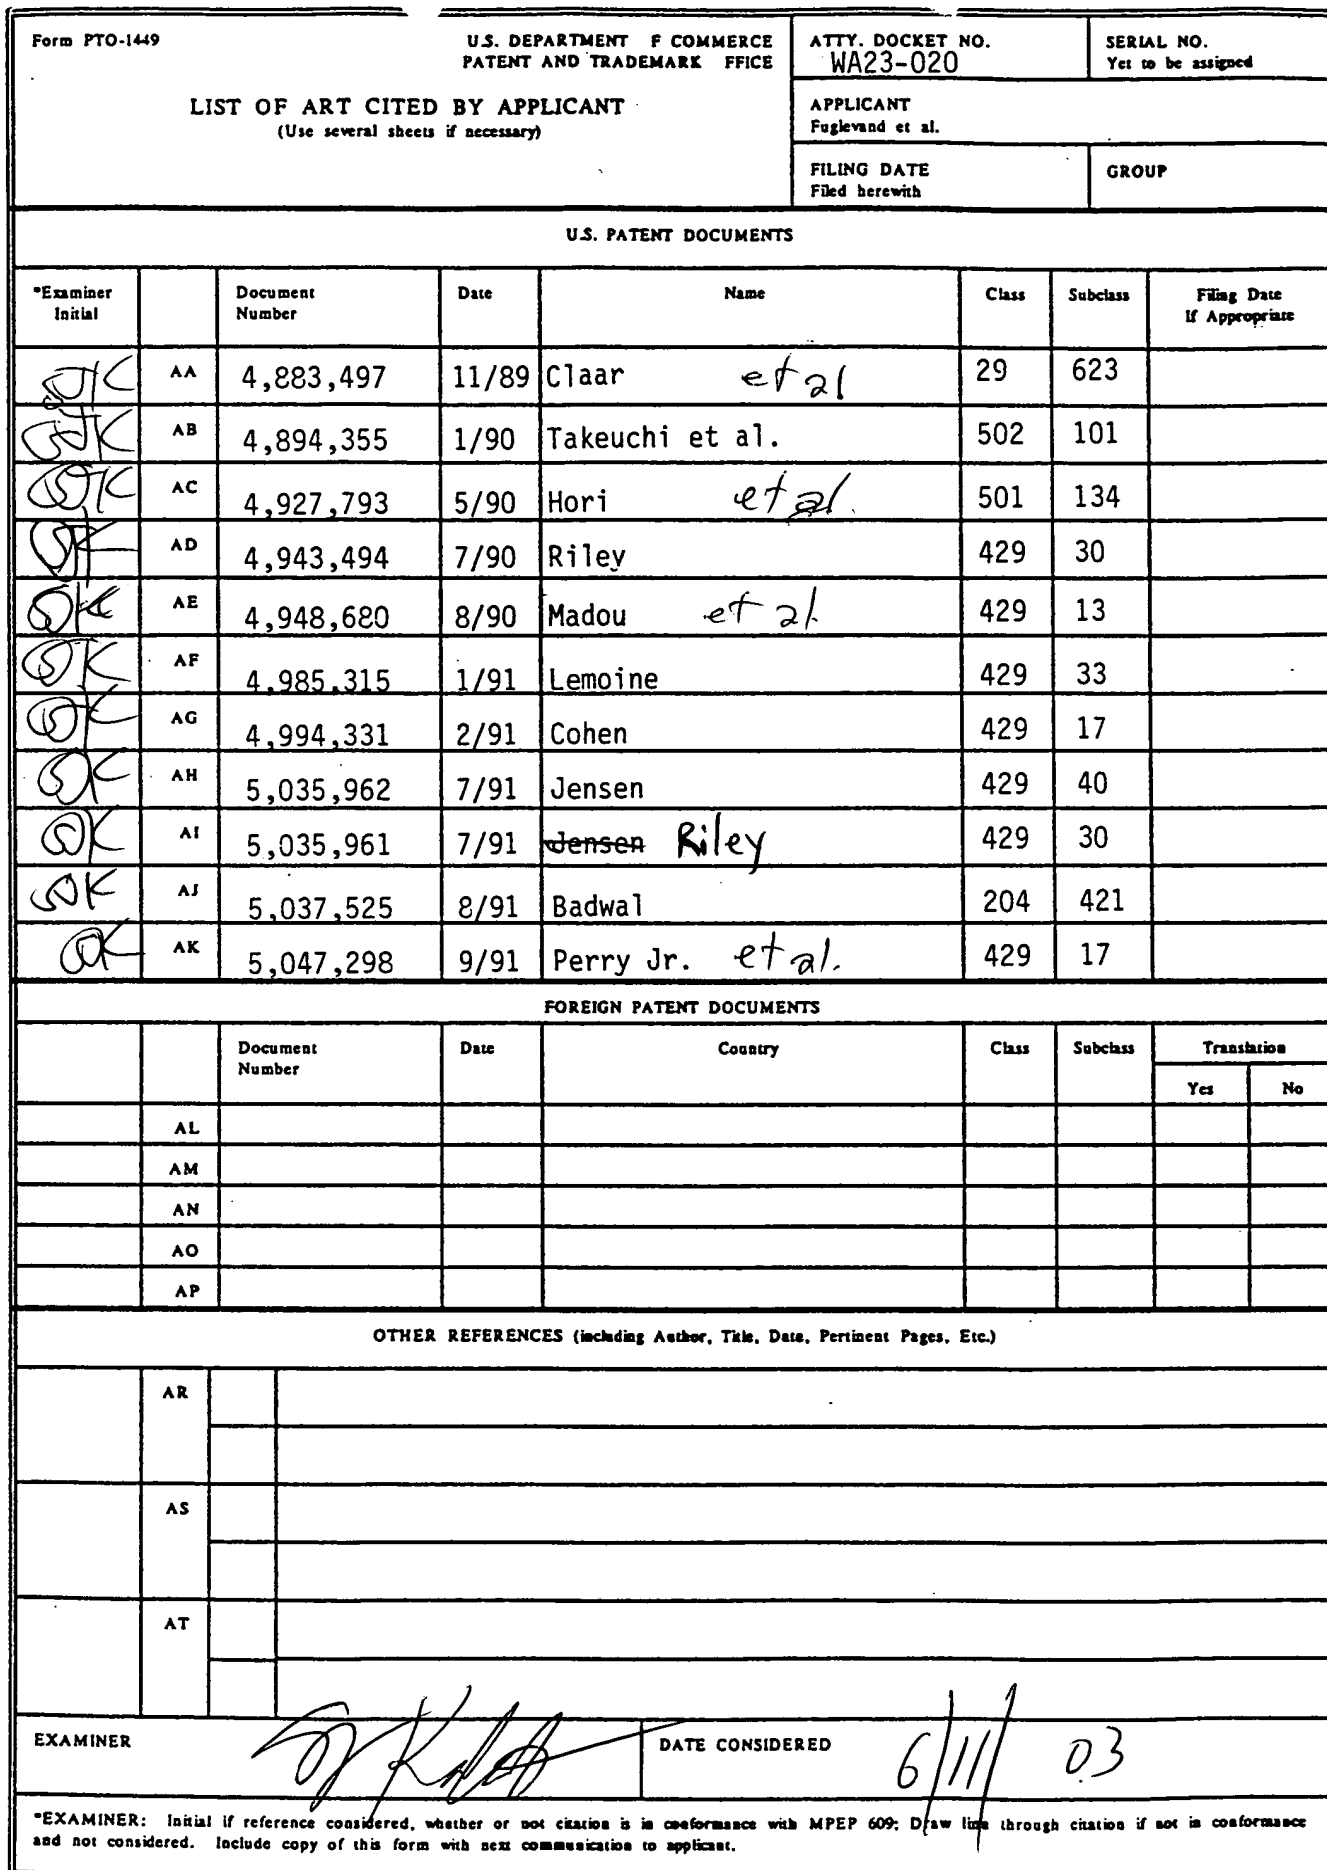 Form PTO-1449
U.S. DEPARTMENT F COMMERCE
PATENT AND TRADEMARK FFICE
ATTY. DOCKET NO.
WA23-020
SERIAL NO.
Yet to be assigned
LIST OF ART CITED BY APPLICANT
(Use several sheets if necessary)
APPLICANT
Fuglevand et al.
FILING DATE
Filed herewith
GROUP
U.S. PATENT DOCUMENTS
*Examiner Initial Document Number Date Name Class Subclass Filing Date If Appropriate
AA 4,883,497 11/89 Claar et al 29 623
AB 4,894,355 1/90 Takeuchi et al. 502 101
AC 4,927,793 5/90 Hori et al. 501 134
AD 4,943,494 7/90 Riley 429 30
AE 4,948,680 8/90 Madou et al. 429 13
AF 4,985,315 1/91 Lemoine 429 33
AG 4,994,331 2/91 Cohen 429 17
AH 5,035,962 7/91 Jensen 429 40
AI 5,035,961 7/91 Jensen Riley 429 30
AJ 5,037,525 8/91 Badwal 204 421
AK 5,047,298 9/91 Perry Jr. et al. 429 17
FOREIGN PATENT DOCUMENTS
Document Number Date Country Class Subclass Translation
Yes No
AL
AM
AN
AO
AP
OTHER REFERENCES (including Author, Title, Date, Pertinent Pages, Etc.)
AR
AS
AT
EXAMINER
DATE CONSIDERED 6/11/03
*EXAMINER: Initial if reference considered, whether or not citation is in conformance with MPEP 609; Draw line through citation if not in conformance
and not considered. Include copy of this form with next communication to applicant.